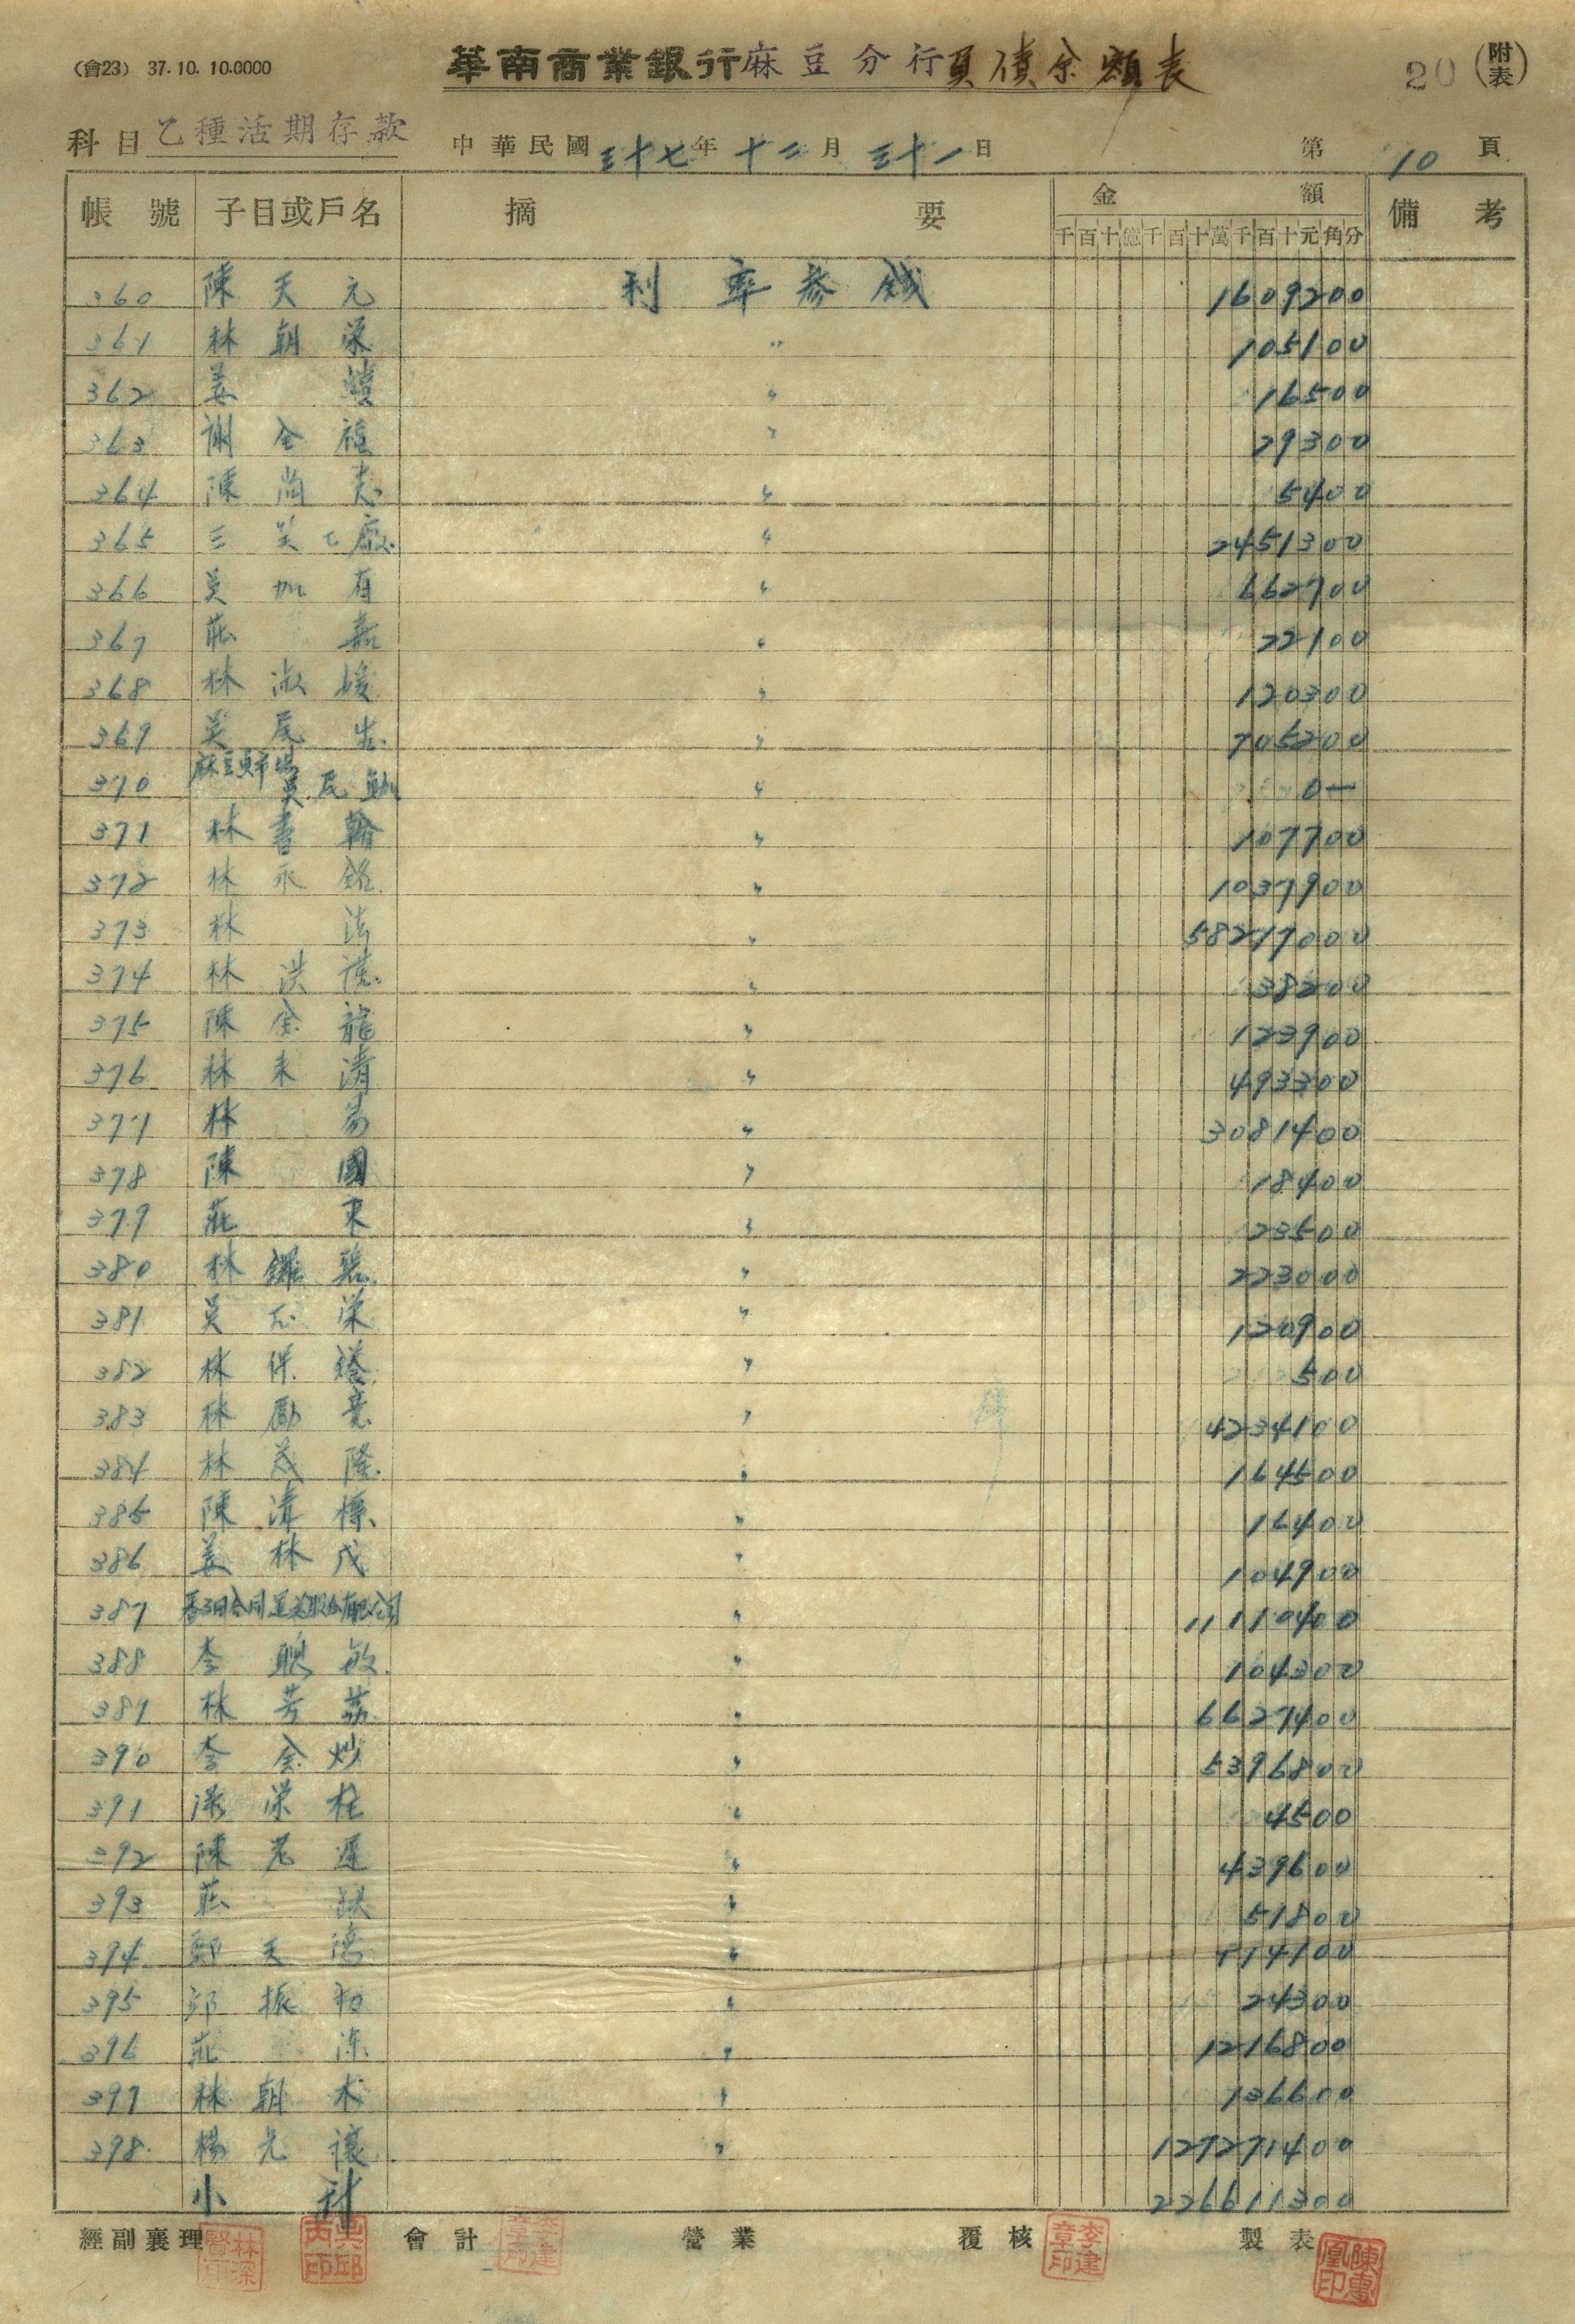 (會23) 37.10.10.0000
華南商業銀行麻豆分行負債余額表
20 (附表)
科目 乙種活期存款 中華民國三十七年十二月三十一日 第10頁
帳號 子目或戶名 摘要 金額 備考
千百十億千百十萬千百十元角分
360 陳天元 利率參錢 1609200
361 林朝榮 〃 105100
362 姜 〃 16500
363 謝全福 〃 29300
364 陳尚志 〃 5400
365 三美工廠 〃 2451300
366 吳加有 〃 662700
367 莊嘉 〃 22100
368 林淑媛 〃 120300
369 吳尾 〃 705200
370 麻豆 吳尾 〃 0—
371 林書翰 〃 107700
372 林永銘 〃 1037900
373 林法 〃 58217000
374 林洪 〃 38200
375 陳金龍 〃 123900
376 林來清 〃 493300
377 林 〃 3081400
378 陳國 〃 18400
379 莊東 〃 23500
380 林 〃 223000
381 吳 榮 〃 120900
382 林保 〃 500
383 林 〃 4234100
384 林茂隆 〃 164500
385 陳清標 〃 16400
386 姜林戊 〃 104900
387 合同運 股份有限公司 〃 11110400
388 李聰敏 〃 104300
389 林芳荔 〃 6627400
390 李金炒 〃 5396800
391 榮柱 〃 4500
392 陳 〃 439600
393 莊 〃 51800
394 鄭天 〃 114100
395 邱振 〃 24300
396 莊 〃 1216800
397 林朝木 〃 136600
398 楊光讓 〃 127271400
小計 226611300
經副襄理 會計 營業 覆核 製表
李建章印
李建章印
陳惠凰印